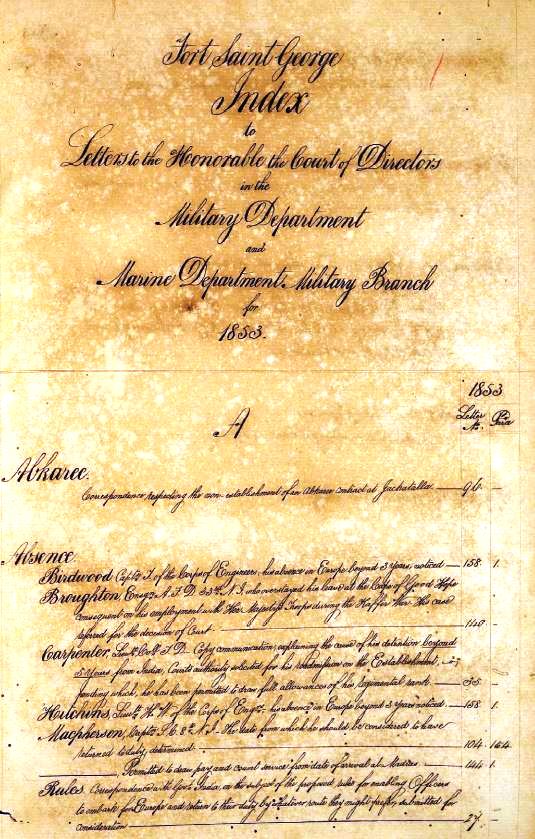 Fort Saint George
Index
to
Letters to the Honorable the Court of Directors
in the
Military Department
and
Marine Department Military Branch
for
1853.
1853
Letter No. Para
A
Abkaree.
Correspondence respecting the non-establishment of an Abkaree contract at Jackatalla 96 -
Absence.
Birdwood Captn of the Corps of Engineers, his absence in Europe beyond 3 Years, noticed 158 1.
Broughton Ensign N.I. who overstayed his leave at the Cape of Good Hope
consequent on his employment with Her Majesty's Troops during the Kaffer War. His case
referred for the decision of Court 140 -
Carpenter, Lieut. Col. Copy communication, explaining the cause of his detention beyond
5 Years from India, Courts authority solicited for his readmission on the Establishment,
pending which, he has been permitted to draw full allowances of his regimental rank 55 -
Hutchins, Lieut. of the Corps of Engrs. his absence in Europe beyond 3 Years noticed 158 1.
Macpherson, Captn. N.I. The date from which he should be considered to have
returned to duty, determined 104
Permitted to draw pay and count service from date of arrival at Madras 144 1.
Rules. Correspondence with Govt. India, on the subject of the proposed rules for enabling Officers
to embark for Europe and return to their duty by whatever route they might prefer, submitted for
consideration 27. -